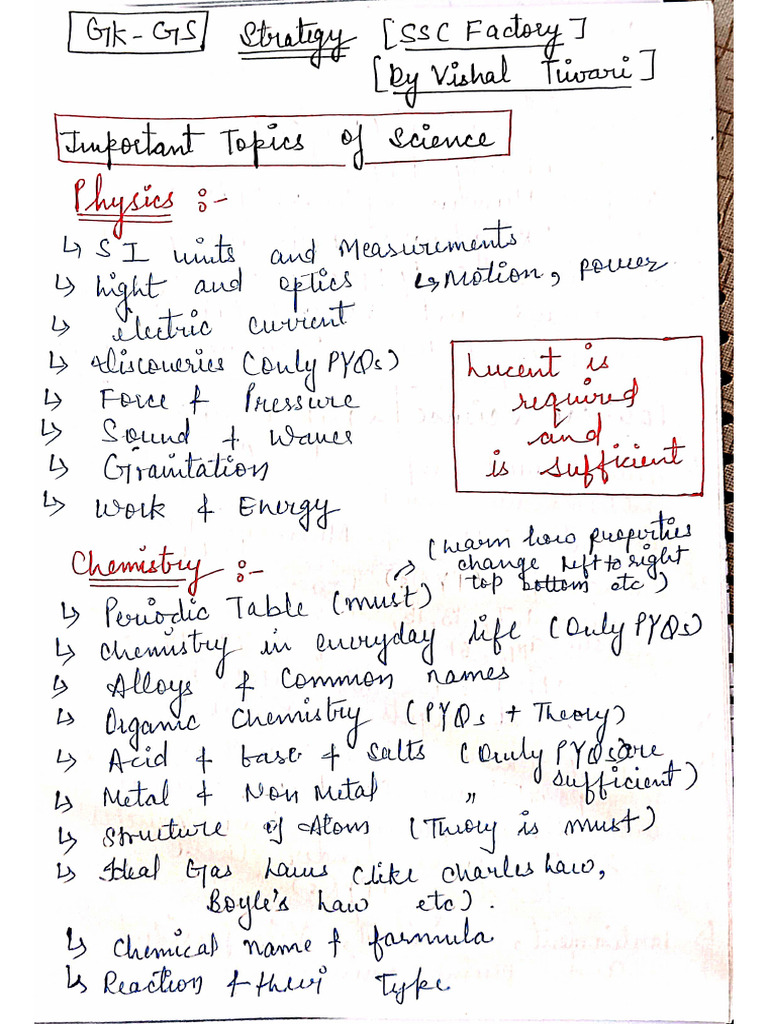 GK-GS Strategy [SSC Factory]
[By Vishal Tiwari]
Important Topics of Science
Physics :-
↳ SI units and Measurements
↳ Light and optics ↳ Motion, power
↳ electric current
↳ discoveries (only PYQs)
↳ Force & Pressure
↳ Sound & Waves
↳ Gravitation
↳ Work & Energy
Lucent is
required
and
is sufficient
Chemistry :-
(Learn how properties
change left to right
top bottom etc)
↳ Periodic Table (must)
↳ Chemistry in everyday life (Only PYQs)
↳ Alloys & Common names
↳ Organic Chemistry (PYQs + Theory)
↳ Acid & base & Salts (Only PYQs are
sufficient)
↳ Metal & Non Metal "
↳ Structure of Atom (Theory is must)
↳ Ideal Gas Laws (like Charles Law,
Boyle's Law etc).
↳ Chemical name & formula
↳ Reaction & their Type